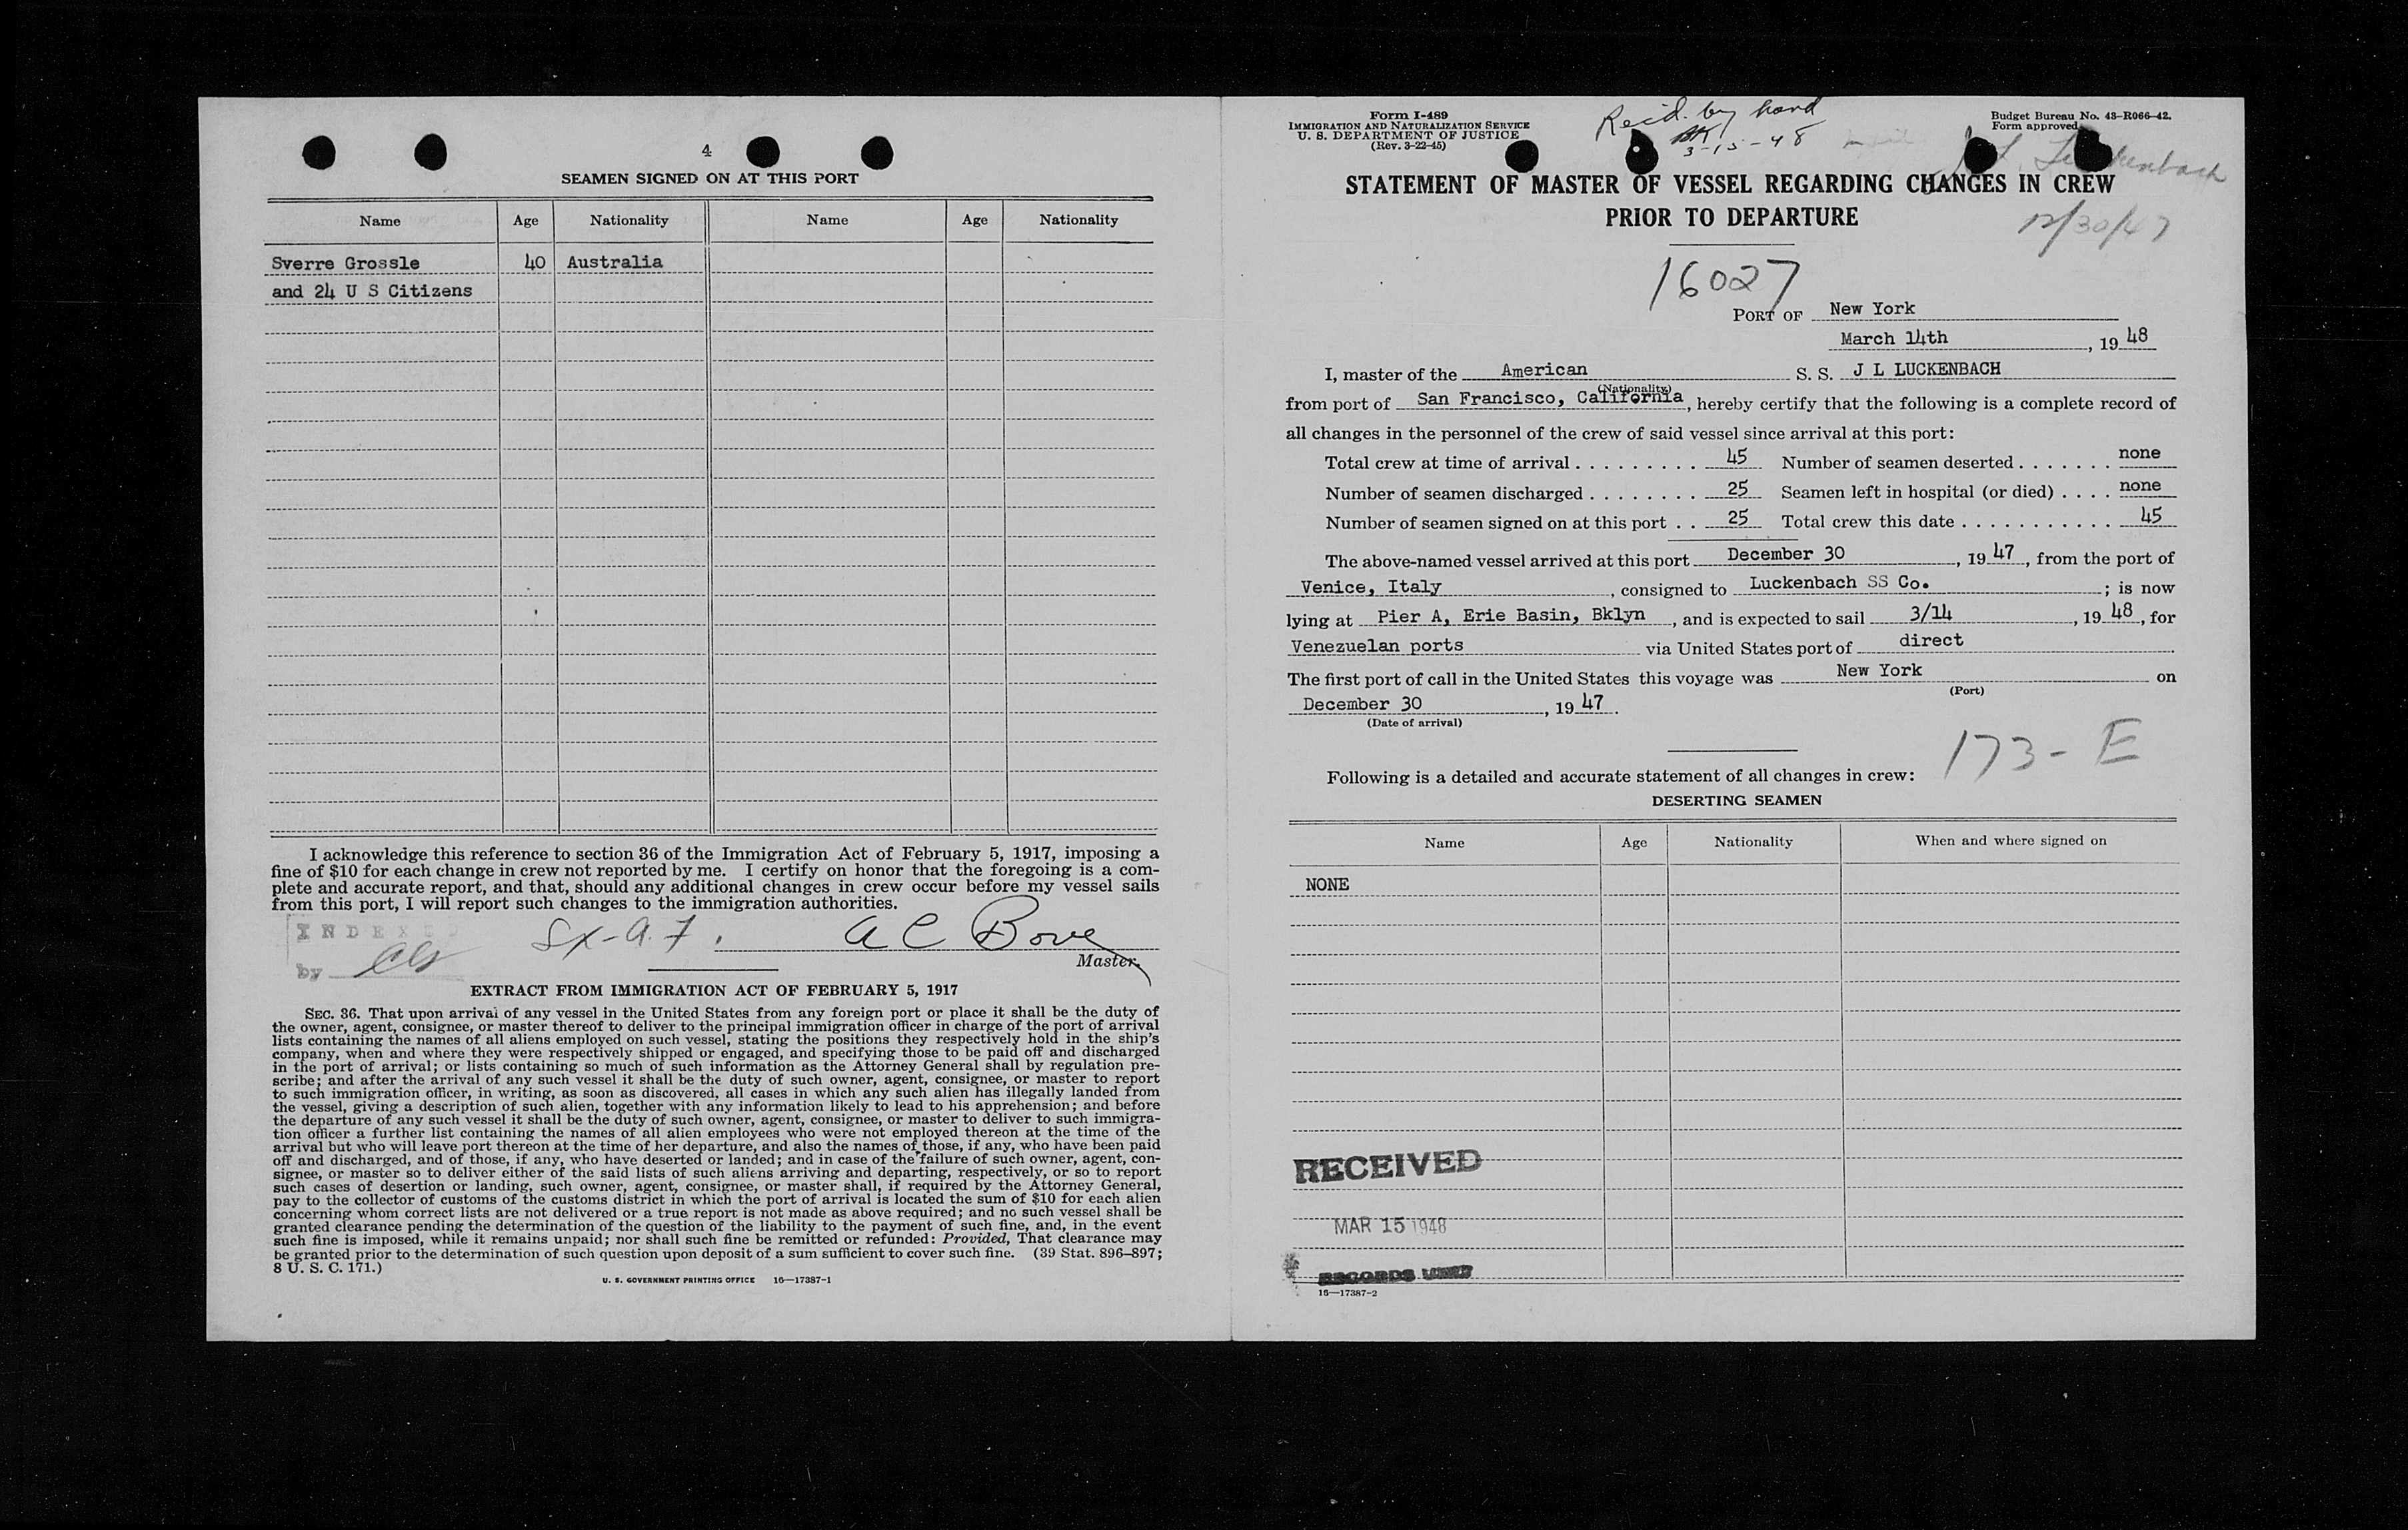 4
SEAMEN SIGNED ON AT THIS PORT
Name Age Nationality Name Age Nationality
Sverre Grossle 40 Australia
and 24 U S Citizens
I acknowledge this reference to section 36 of the Immigration Act of February 5, 1917, imposing a
fine of $10 for each change in crew not reported by me. I certify on honor that the foregoing is a com-
plete and accurate report, and that, should any additional changes in crew occur before my vessel sails
from this port, I will report such changes to the immigration authorities.
INDEXED
by
A C Bove
Master.
EXTRACT FROM IMMIGRATION ACT OF FEBRUARY 5, 1917
SEC. 36. That upon arrival of any vessel in the United States from any foreign port or place it shall be the duty of
the owner, agent, consignee, or master thereof to deliver to the principal immigration officer in charge of the port of arrival
lists containing the names of all aliens employed on such vessel, stating the positions they respectively hold in the ship's
company, when and where they were respectively shipped or engaged, and specifying those to be paid off and discharged
in the port of arrival; or lists containing so much of such information as the Attorney General shall by regulation pre-
scribe; and after the arrival of any such vessel it shall be the duty of such owner, agent, consignee, or master to report
to such immigration officer, in writing, as soon as discovered, all cases in which any such alien has illegally landed from
the vessel, giving a description of such alien, together with any information likely to lead to his apprehension; and before
the departure of any such vessel it shall be the duty of such owner, agent, consignee, or master to deliver to such immigra-
tion officer a further list containing the names of all alien employees who were not employed thereon at the time of the
arrival but who will leave port thereon at the time of her departure, and also the names of those, if any, who have been paid
off and discharged, and of those, if any, who have deserted or landed; and in case of the failure of such owner, agent, con-
signee, or master so to deliver either of the said lists of such aliens arriving and departing, respectively, or so to report
such cases of desertion or landing, such owner, agent, consignee, or master shall, if required by the Attorney General,
pay to the collector of customs of the customs district in which the port of arrival is located the sum of $10 for each alien
concerning whom correct lists are not delivered or a true report is not made as above required; and no such vessel shall be
granted clearance pending the determination of the question of the liability to the payment of such fine, and, in the event
such fine is imposed, while it remains unpaid; nor shall such fine be remitted or refunded: Provided, That clearance may
be granted prior to the determination of such question upon deposit of a sum sufficient to cover such fine. (39 Stat. 896–897;
8 U. S. C. 171.)
U. S. GOVERNMENT PRINTING OFFICE 16—17387-1
Form I-489
IMMIGRATION AND NATURALIZATION SERVICE
U. S. DEPARTMENT OF JUSTICE
(Rev. 3-22-45)
Rec'd. by hand
3-15-48
Budget Bureau No. 43-R066-42.
Form approved.
J L Luckenbach
STATEMENT OF MASTER OF VESSEL REGARDING CHANGES IN CREW
PRIOR TO DEPARTURE
12/30/47
16027
PORT OF New York
March 14th, 19 48
I, master of the American S. S. J L LUCKENBACH
(Nationality)
from port of San Francisco, California, hereby certify that the following is a complete record of
all changes in the personnel of the crew of said vessel since arrival at this port:
Total crew at time of arrival . . . . . . . . . 45 Number of seamen deserted . . . . . . . none
Number of seamen discharged . . . . . . . . 25 Seamen left in hospital (or died) . . . . none
Number of seamen signed on at this port . . 25 Total crew this date . . . . . . . . . . . 45
The above-named vessel arrived at this port December 30, 19 47, from the port of
Venice, Italy, consigned to Luckenbach SS Co. ; is now
lying at Pier A, Erie Basin, Bklyn, and is expected to sail 3/14, 19 48, for
Venezuelan ports via United States port of direct.
The first port of call in the United States this voyage was New York on
(Port)
December 30, 19 47.
(Date of arrival)
173-E
Following is a detailed and accurate statement of all changes in crew:
DESERTING SEAMEN
Name Age Nationality When and where signed on
NONE
RECEIVED
MAR 15 1948
RECORDS UNIT
16—17387-2